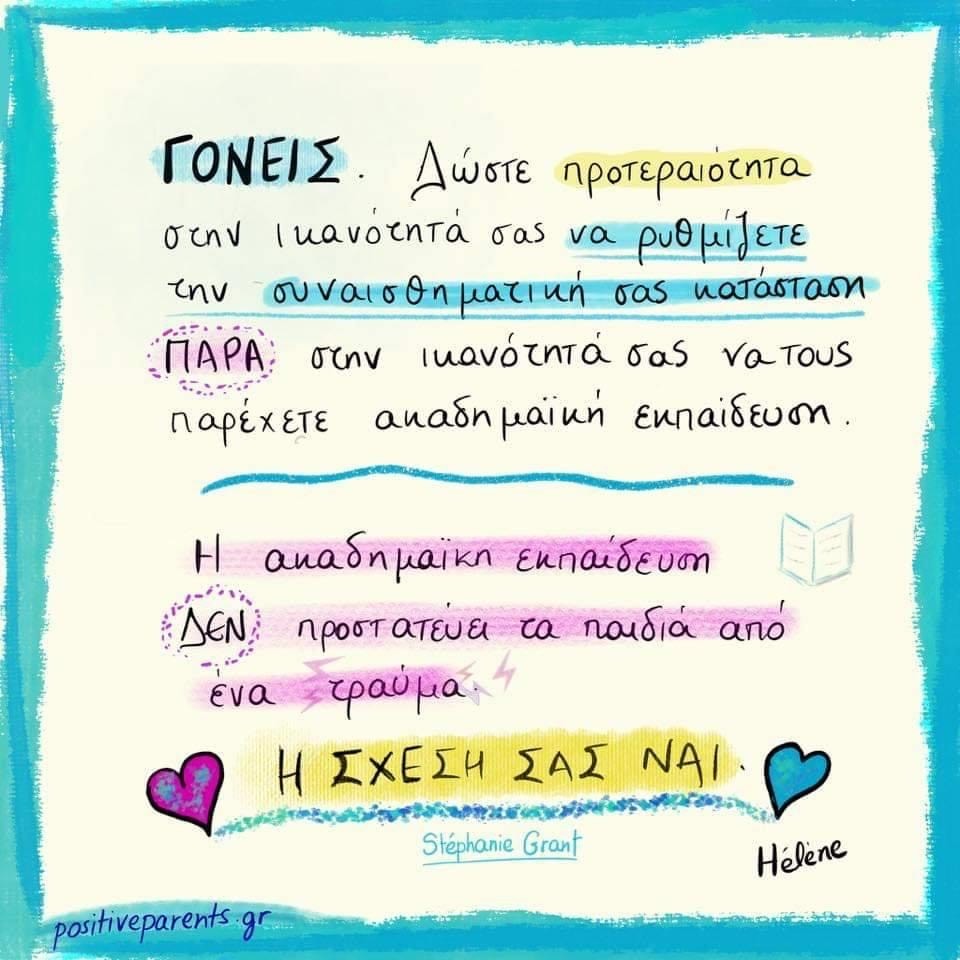 ΓΟΝΕΙΣ. Δώστε προτεραιότητα
στην ικανότητά σας να ρυθμίζετε
την συναισθηματική σας κατάσταση
ΠΑΡΑ στην ικανότητά σας να τους
παρέχετε ακαδημαϊκή εκπαίδευση.
Η ακαδημαϊκη εκπαίδευση
ΔΕΝ προστατεύει τα παιδιά από
ένα τραύμα.
Η ΣΧΕΣΗ ΣΑΣ ΝΑΙ.
Stéphanie Grant
Hélène
positiveparents.gr